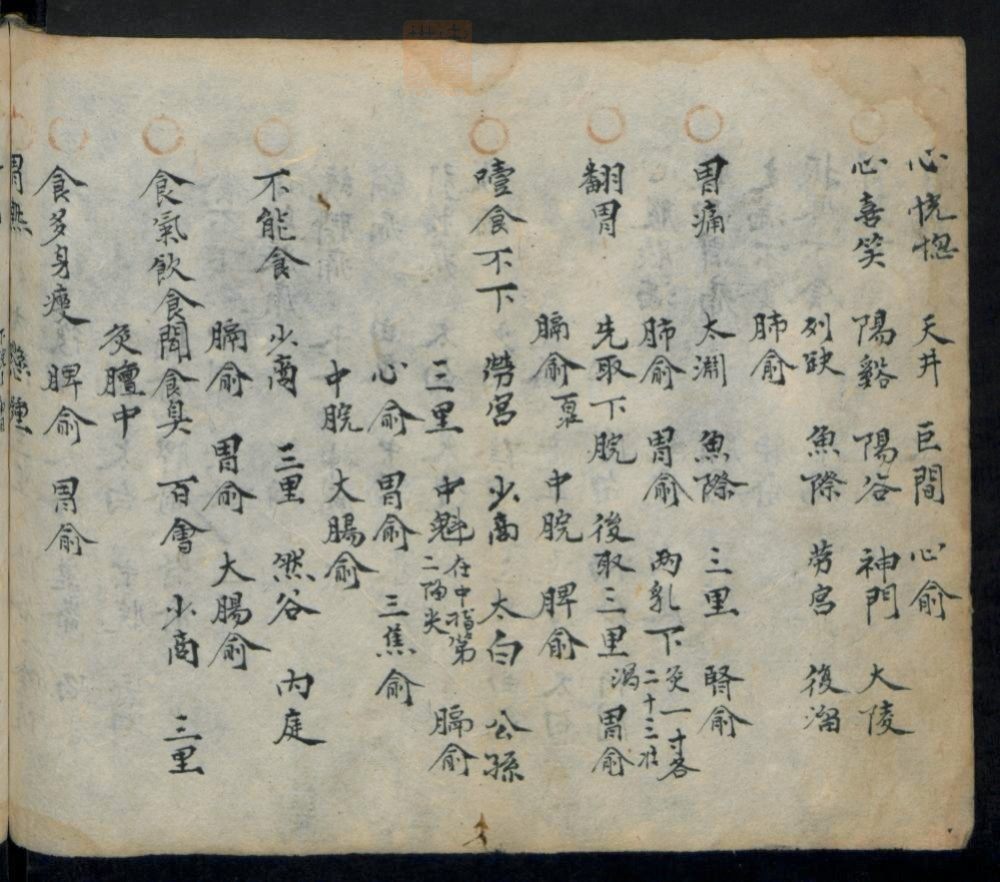 心恍惚 天井 巨間 心俞
心喜笑 陽谿 陽谷 神門 大陵
列缺 魚際 劳宮 復溜
肺俞
胃痛 太淵 魚際 三里 腎俞
肺俞 胃俞 两乳下 灸一寸各二十三壮
翻胃 先取下脘 後取三里瀉 胃俞
膈俞 中脘 脾俞
噎食不下 勞宮 少商 太白 公孫
三里 中魁 在中指第二節尖 膈俞
心俞 胃俞 三焦俞
中脘 大腸俞
不能食 少商 三里 然谷 内庭
膈俞 胃俞 大腸俞
食氣飲食聞食臭 百會 少商 三里
灸膻中
食多身瘦 脾俞 胃俞
胃熱 懸鍾